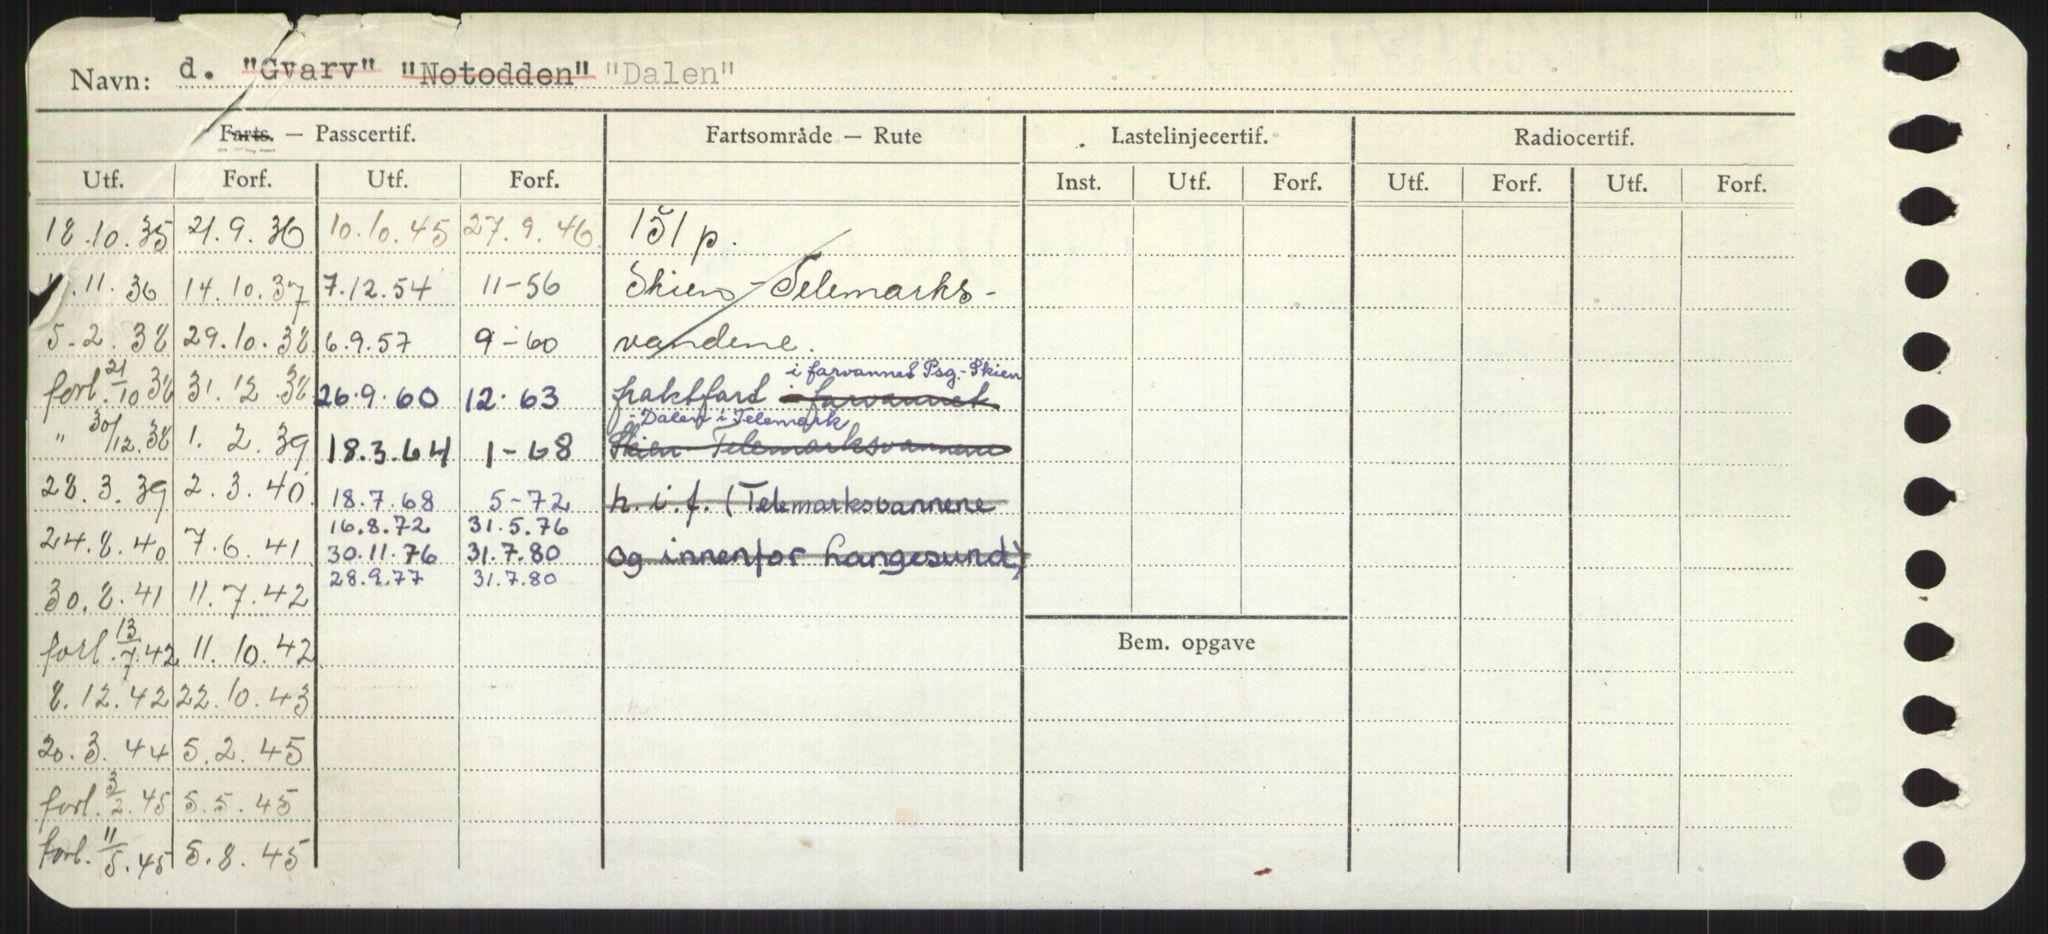 Navn: d. "Gvarv" "Notodden" "Dalen"
Farts. — Passcertif. Fartsområde — Rute Lastelinjecertif. Radiocertif.
Utf. Forf. Utf. Forf. Inst. Utf. Forf. Utf. Forf. Utf. Forf.
18.10.35 21.9.36 10.10.45 27.9.46. 151 p.
.11.36 14.10.37 7.12.54 11-56 Skien - Telemarks-
5.2.38 29.10.38 6.9.57 9-60 vandene.
i farvannet Psg.-Skien
forl. 21/10 38 31.12.38 26.9.60 12.63 fraktfart i farvannet
- Dalen i Telemark
" 30/12.38 1.2.39 18.3.64 1-68 Skien-Telemarksvannene
28.3.39 2.3.40. 18.7.68 5-72 h.i.f. (Telemarksvannene
16.8.72 31.5.76
24.8.40 7.6.41 30.11.76 31.7.80 og innenfor Langesund)
28.9.77 31.7.80
30.8.41 11.7.42
forl. 13/7.42 11.10.42 Bem. opgave
8.12.42 22.10.43
20.3.44 5.2.45
forl. 3/2.45 5.5.45
forl. 11/5.45 5.8.45